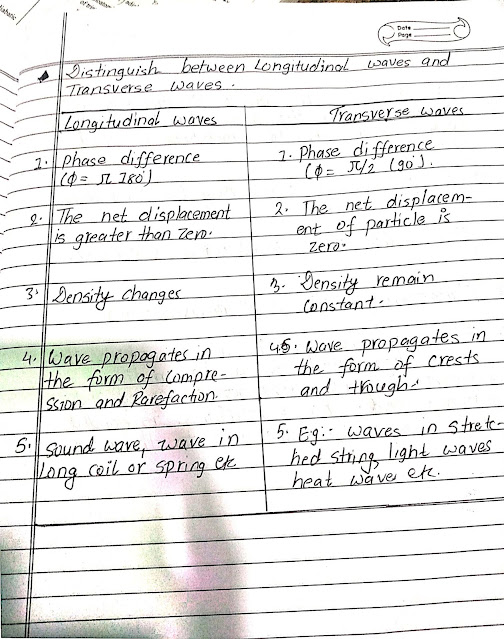 Date
Page
Distinguish between Longitudinal waves and
Transverse waves.
Longitudinal waves
Transverse waves
1. Phase difference
(φ = π 180°)
1. Phase difference
(φ = π/2 (90°).
2. The net displacement
is greater than Zero.
2. The net displacem-
ent of particle is
zero.
3. Density changes
3. Density remain
Constant.
4. Wave propagates in
the form of Compre-
ssion and Rarefaction.
45. Wave propagates in
the form of Crests
and through.
5. Sound wave, wave in
long coil or spring etc
5. Eg:- waves in stretc-
hed string, light waves
heat wave etc.